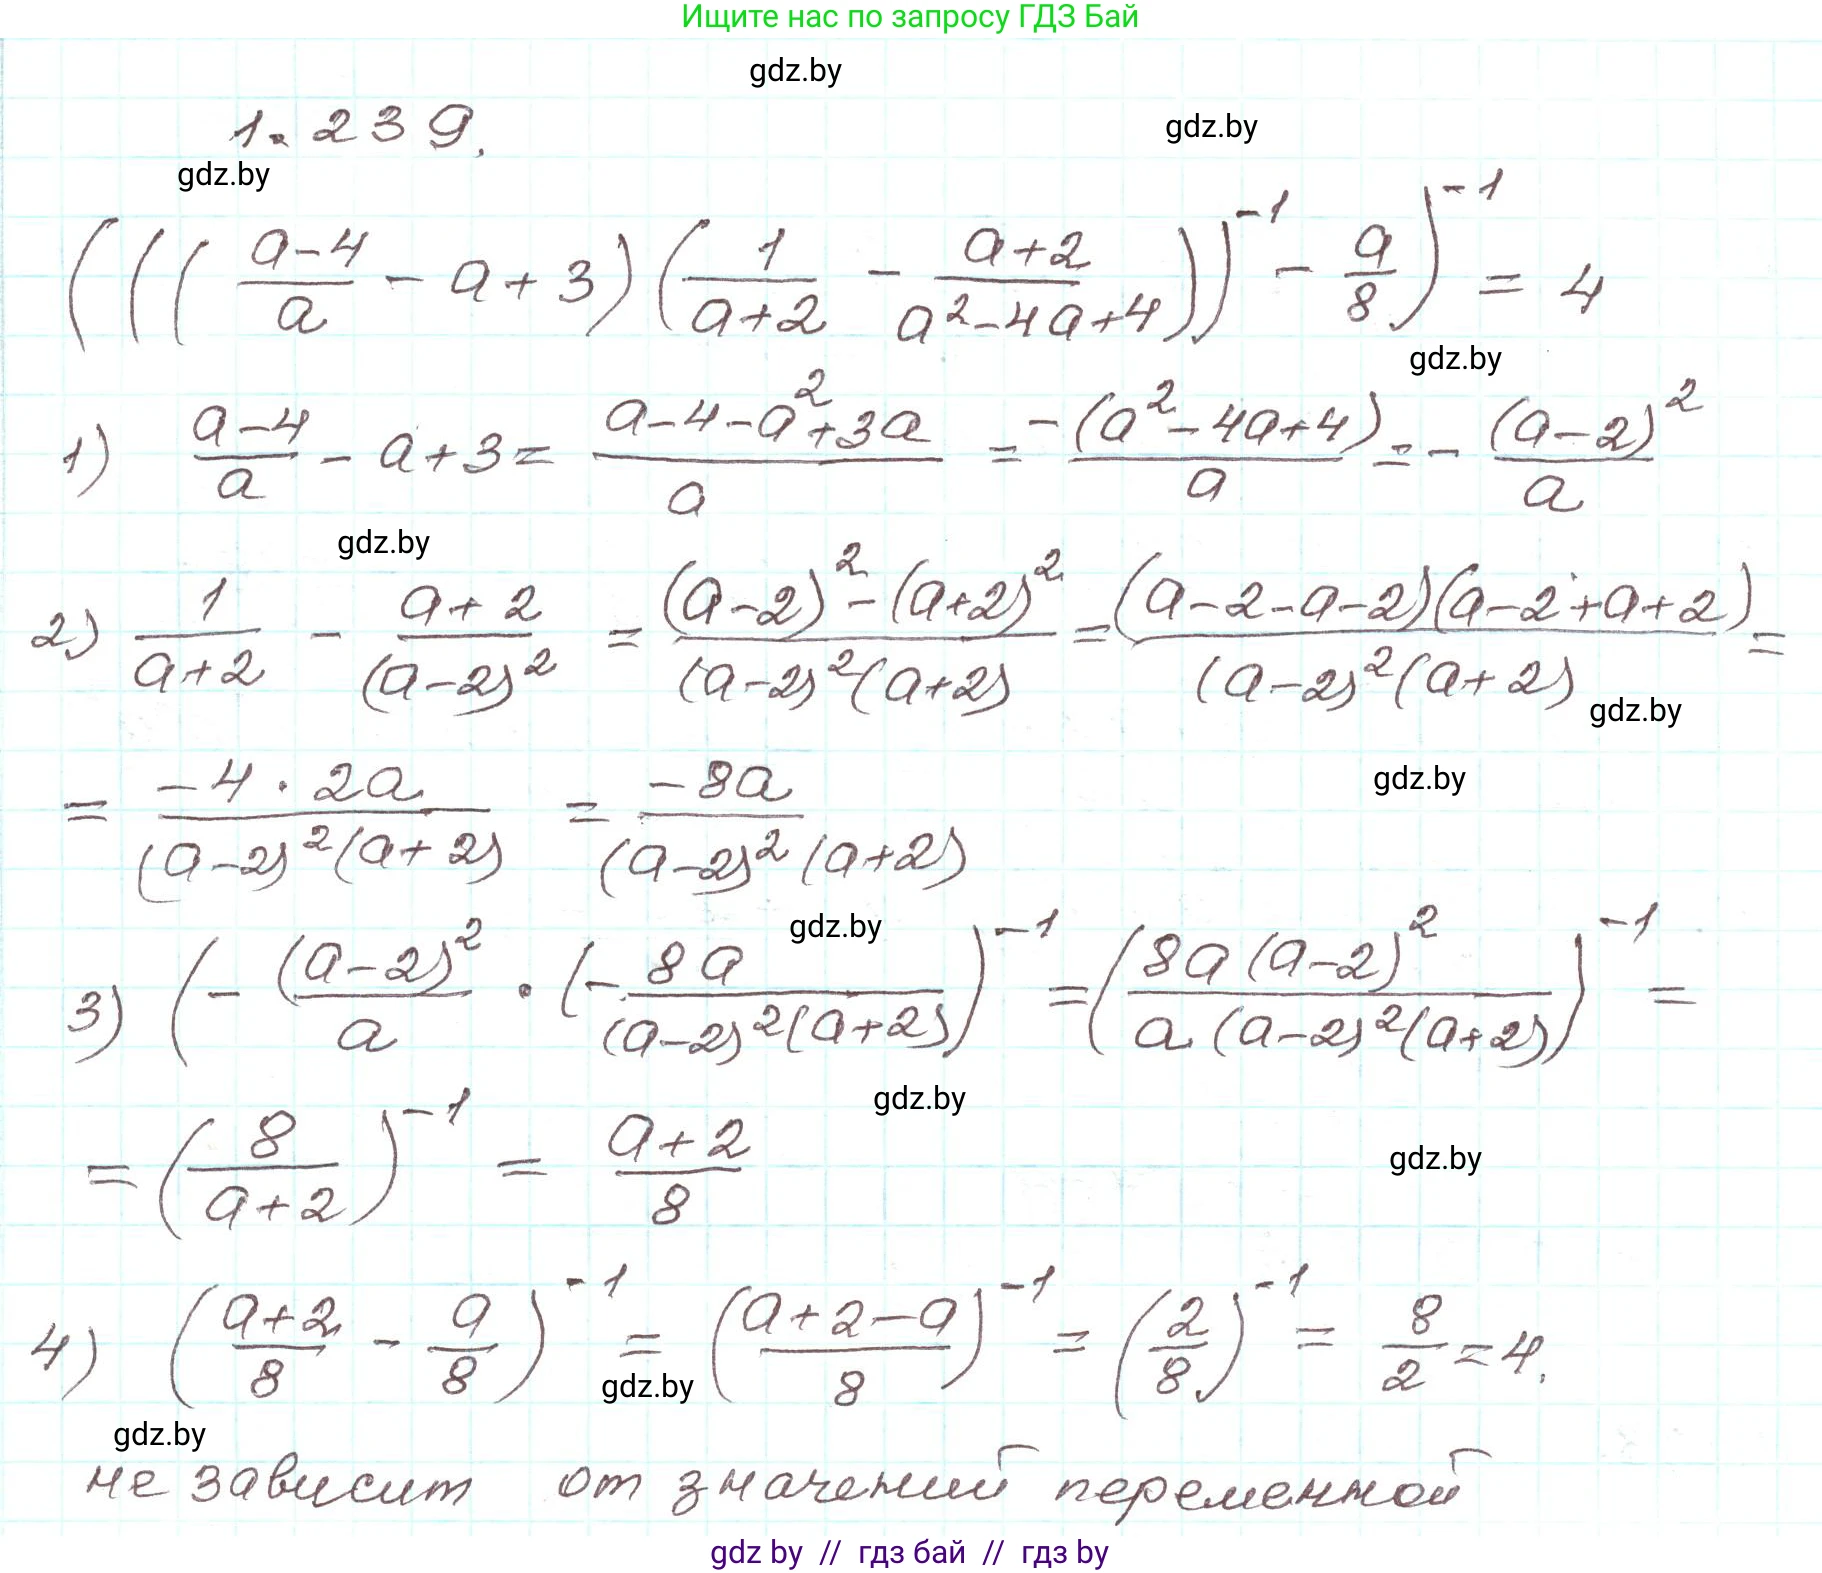 Ищите нас по запросу ГДЗ Бай
gdz.by
1.239.
gdz.by
gdz.by
(((a-4/a - a + 3)(1/a+2 - a+2/a²-4a+4))⁻¹ - a/8)⁻¹ = 4
gdz.by
1) a-4/a - a+3 = a-4-a²+3a/a = -(a²-4a+4)/a = - (a-2)²/a
gdz.by
2) 1/a+2 - a+2/(a-2)² = (a-2)²-(a+2)²/(a-2)²(a+2) = (a-2-a-2)(a-2+a+2)/(a-2)²(a+2) =
gdz.by
= -4·2a/(a-2)²(a+2) = -8a/(a-2)²(a+2)
gdz.by
gdz.by
3) (- (a-2)²/a · (- 8a/(a-2)²(a+2))⁻¹ = (8a(a-2)²/a.(a-2)²(a+2))⁻¹ =
gdz.by
= (8/a+2)⁻¹ = a+2/8
gdz.by
4) (a+2/8 - a/8)⁻¹ = (a+2-a/8)⁻¹ = (2/8)⁻¹ = 8/2 = 4.
gdz.by
gdz.by
не зависит от значений переменной
gdz by // гдз бай // гдз by